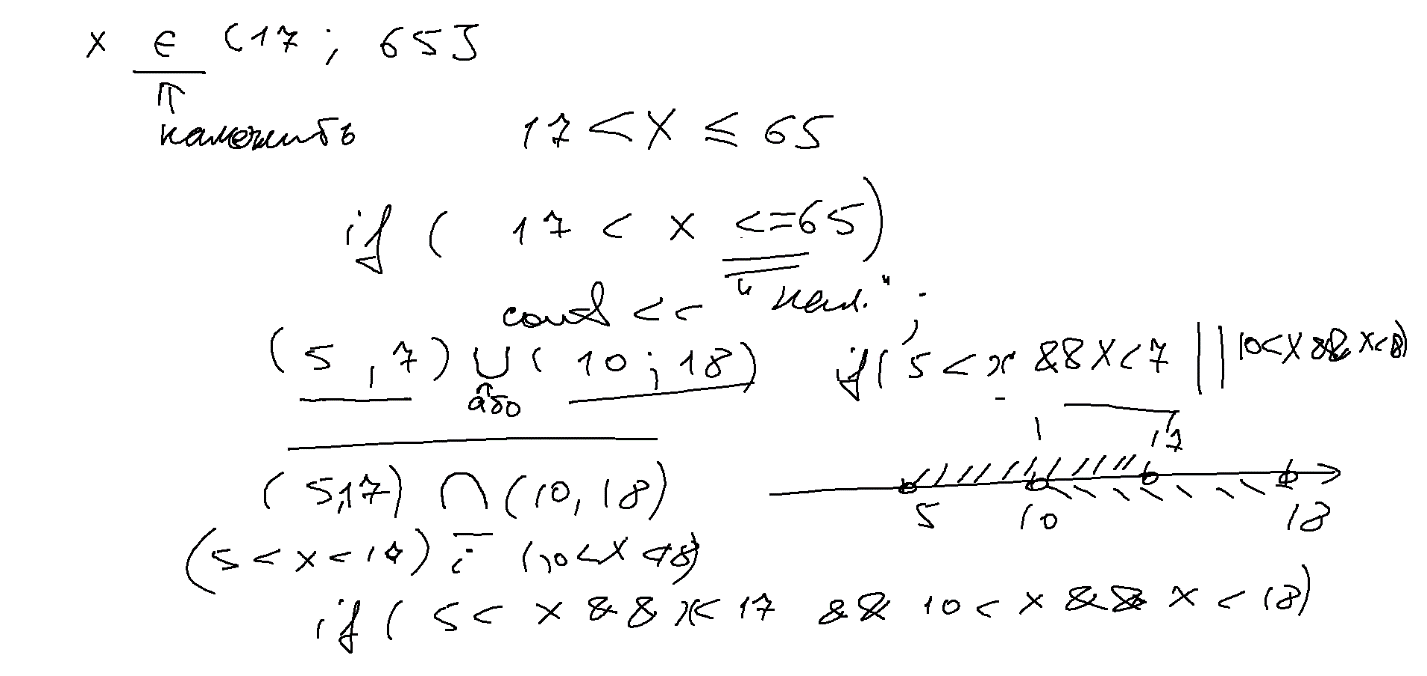 x ∈ (17 ; 65]
належить
17 < x ≤ 65
if ( 17 < x <= 65)
cout << "нал." ;
(5 , 7) ∪ ( 10 ; 18) if( 5 < x && x < 7 || 10 < x && x < 8)
або
17
(5,17) ∩ (10, 18)
5 10 18
(5 < x < 17) і (10 < x < 18)
if ( 5 < x && x < 17 && 10 < x && x < 18)